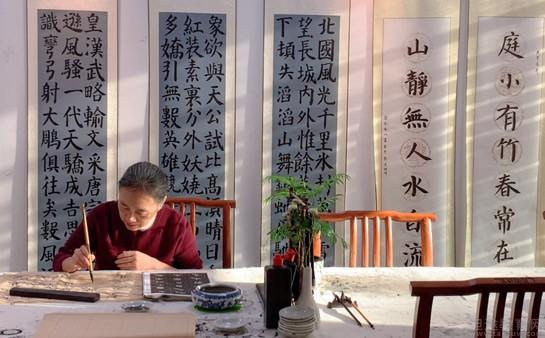 庭小有竹春常在
山靜無人水自流
北國風光千里冰封
望長城內外惟餘莽
下頓失滔滔山舞銀蛇馳
象欲與天公試比高須晴日
紅裝素裹分外妖嬈
多嬌引無數英雄競
皇漢武略輸文采唐宗
遜風騷一代天驕成吉思
識彎弓射大鵰俱往矣數風